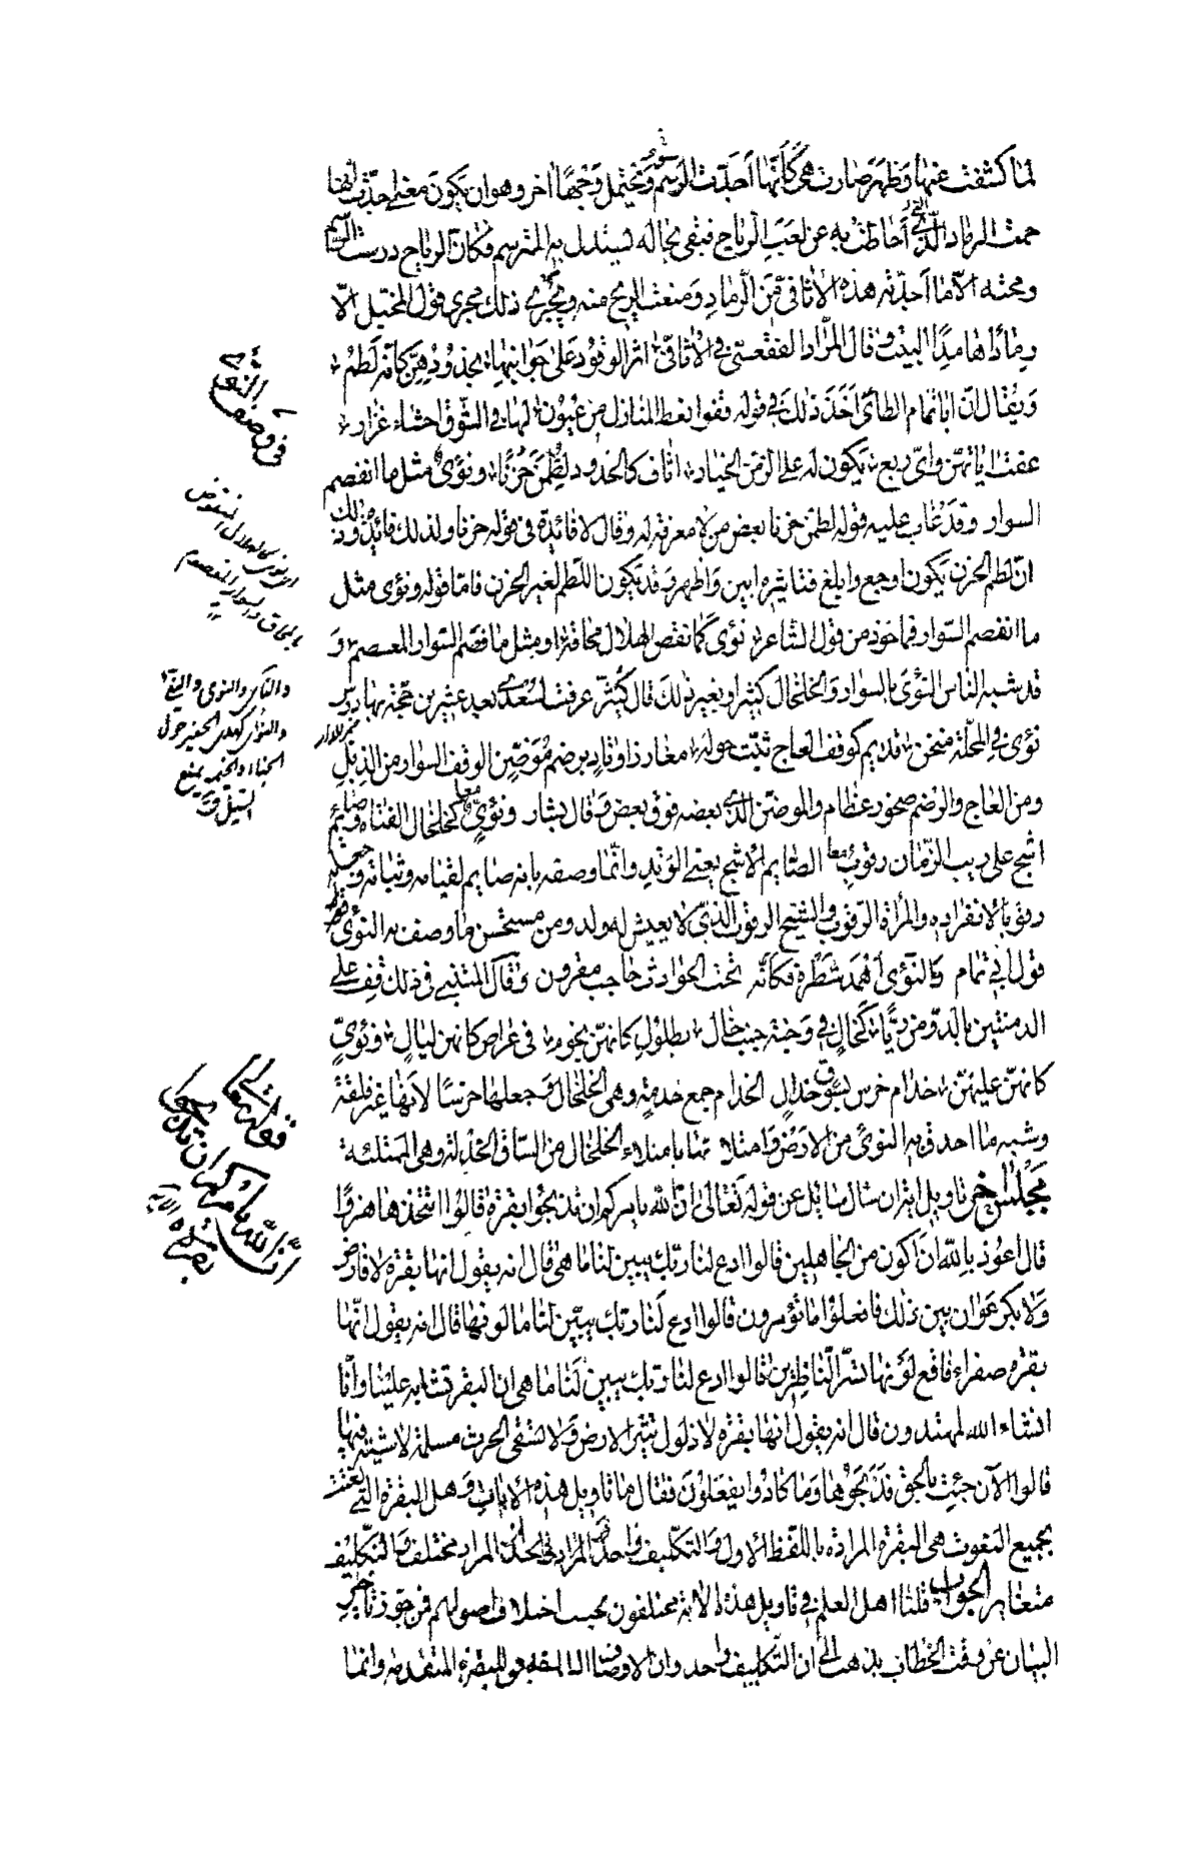 لما كشفت عنها وظهر صارت هي كأنها أجدّت الرسم ويحتمل وجهًا اخر وهو ان يكون معنى اجدّت انها
حمت الرماد الذي أحاطت به عن لعب الرياح فبقى بحاله ليستدل به المترسم فكان الرياح درست الرسم
ومحته الا ما اجدّته هذه الاثافي من الرماد ومنعت الريح منه ويجري ذلك مجرى قول المخبل الا
رمادًا هامدًا البيت وقال المرّار الفقعسي في الاثافي اثر الوقود على جوانبها بخدودهن كأنه لطم
ويقال ان ابا تمام الطائي اخذ ذلك في قوله قفوا نعط المنازل من عيون لها في الشوق احشاء غزار
عفت اياتهن واي ربع يكون له على الزمن الخيار اثاف كالخدود لطمن حزنًا ونؤى مثل ما انفصم
السوار وقد عاب عليه قوله لطمن حزنا بعض من لا معرفة له وقال لا فائدة في قوله حزنا ولذلك فائدة وذلك
ان لطم الحزن يكون اوجع وابلغ فتاثيره ابين واظهر وقد يكون اللطم لغير الحزن فاما قوله ونؤى مثل
ما انفصم السوار فماخوذ من قول الشاعر نؤى كما نقص الهلال محاقه او مثل ما فصم السوار المعصم و
قد شبه الناس النؤى بالسوار والخلخال كثيرا وبغير ذلك قال كثيّر عرفت لسعدى بعد عشرين حجة بها درس
نؤى في المحلة منحن قديم كوقف العاج ثبّت حوله مغارز اوتاد برضم موضّن الوقف السوار من الذبل
ومن العاج والرضم صخور عظام والموضن الذي بعضه فوق بعض وقال بشار ونؤى كخلخال الفتاة وصايم
اشج على ريب الزمان رقوب الصايم الاشج يعنى الوتد وانما وصفه بانه صايم لقيامه وثباته وجعله
رقوبا لانفراده والمراة الرقوب والشيخ الرقوب الذي لا يعيش له ولد ومن مستحسن ما وصف به النؤى
قول ابي تمام والنؤى أهمد شطره فكأنه تحت الحوادث حاجب مقرون وقال المتنبى في ذلك قف على
الدمنتين بالدو من ريّا كخال في وجنة جنب خال بطلول كانهن نجوم في عراص كانهن ليال ونؤى
كانهن عليهن خدام خرس بسوق خدال الخدام جمع خدمة وهي الخلخال وجعلها خرسًا لانها غير قلقة
وشبه ما احدق به النؤى من الارض وامتلا بها بامتلاء الخلخال من الساق الخدلة وهي الممتلئة
مجلس اخر تاويل اية ان سال سايل عن قوله تعالى ان الله يامركم ان تذبحوا بقرة قالوا اتتخذنا هزوًا
قال اعوذ بالله ان اكون من الجاهلين قالوا ادع لنا ربك يبين لنا ما هي قال انه يقول انها بقرة لا فارض
ولا بكر عوان بين ذلك فافعلوا ما تؤمرون قالوا ادع لنا ربك يبيّن لنا ما لونها قال انه يقول انها
بقرة صفراء فاقع لونها تسرّ الناظرين قالوا ادع لنا ربك يبين لنا ما هي ان البقر تشابه علينا وانّا
انشاء الله لمهتدون قال انه يقول انها بقرة لا ذلول تثير الارض ولا تسقى الحرث مسلمة لاشية فيها
قالوا الآن جئت بالحق فذبحوها وما كادوا يفعلون فقال ما تاويل هذه الايات وهل البقرة التي نعتت
بجميع النعوت هي البقرة المرادة باللفظ الاول والتكليف واحد المراد مختلف والتكليف
متغاير الجواب قلنا اهل العلم في تاويل هذه الاية مختلفون بحسب اختلاف اصولهم فمن جوز تاخير
البيان عن وقت الخطاب يذهب الى ان التكليف واحد وان الاوصاف للبقرة المتقدمة وانما
في وصف النوى
قوله تعالى
ان الله يامركم ان تذبحوا
بقرة الاية